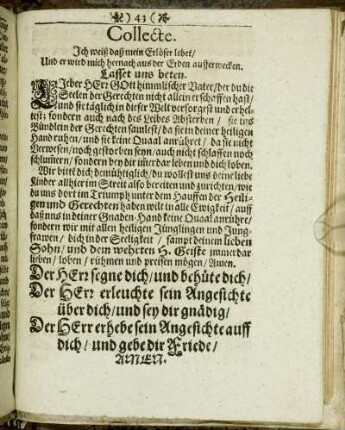 ) 43 (
Collecte.
Ich weiß daß mein Erlöser lebet/
Und er wird mich hernach aus der Erden aufferwecken.
Lasset uns beten.
LIeber HErr GOtt himmlischer Vater/ der du die
Seelen der Gerechten nicht allein erschaffen hast/
und sie täglich in dieser Welt versorgest und erhel-
test: sondern auch nach des Leibes Absterben/ sie ins
Bündlein der Gerechten samlest/ da sie in deiner heiligen
Hand ruhen/ und sie kein Quaal anrühret/ da sie nicht
Verwesen/ noch gestorben seyn/ auch nicht schlaffen noch
schlum̃ern/ sondern bey dir im̃erdar leben und dich loben.
Wir bitten dich demühtiglich/ du wollest uns deine liebe
Kinder allhier im Streit also bereiten und zurichten/ wie
du uns dort im Triumph unter dem Hauffen der Heili-
gen und Gerechten haben wilt in alle Ewigkeit/ auff
daß uns in deiner Gnaden-Hand keine Quaal anrühre/
sondern wir mit allen heiligen Jünglingen und Jung-
frawen/ dich in der Seeligkeit/ sampt deinem lieben
Sohn/ und dem wehrten H. Geiste immerdar
lieben/ loben/ rühmen und preisen mögen/ Amen.
Der HErr segne dich/ und behüte dich/
Der HErr erleuchte sein Angesichte
über dich/ und sey dir gnädig/
Der HErr erhebe sein Angesichte auff
dich/ und gebe dir Friede/
AMEN.